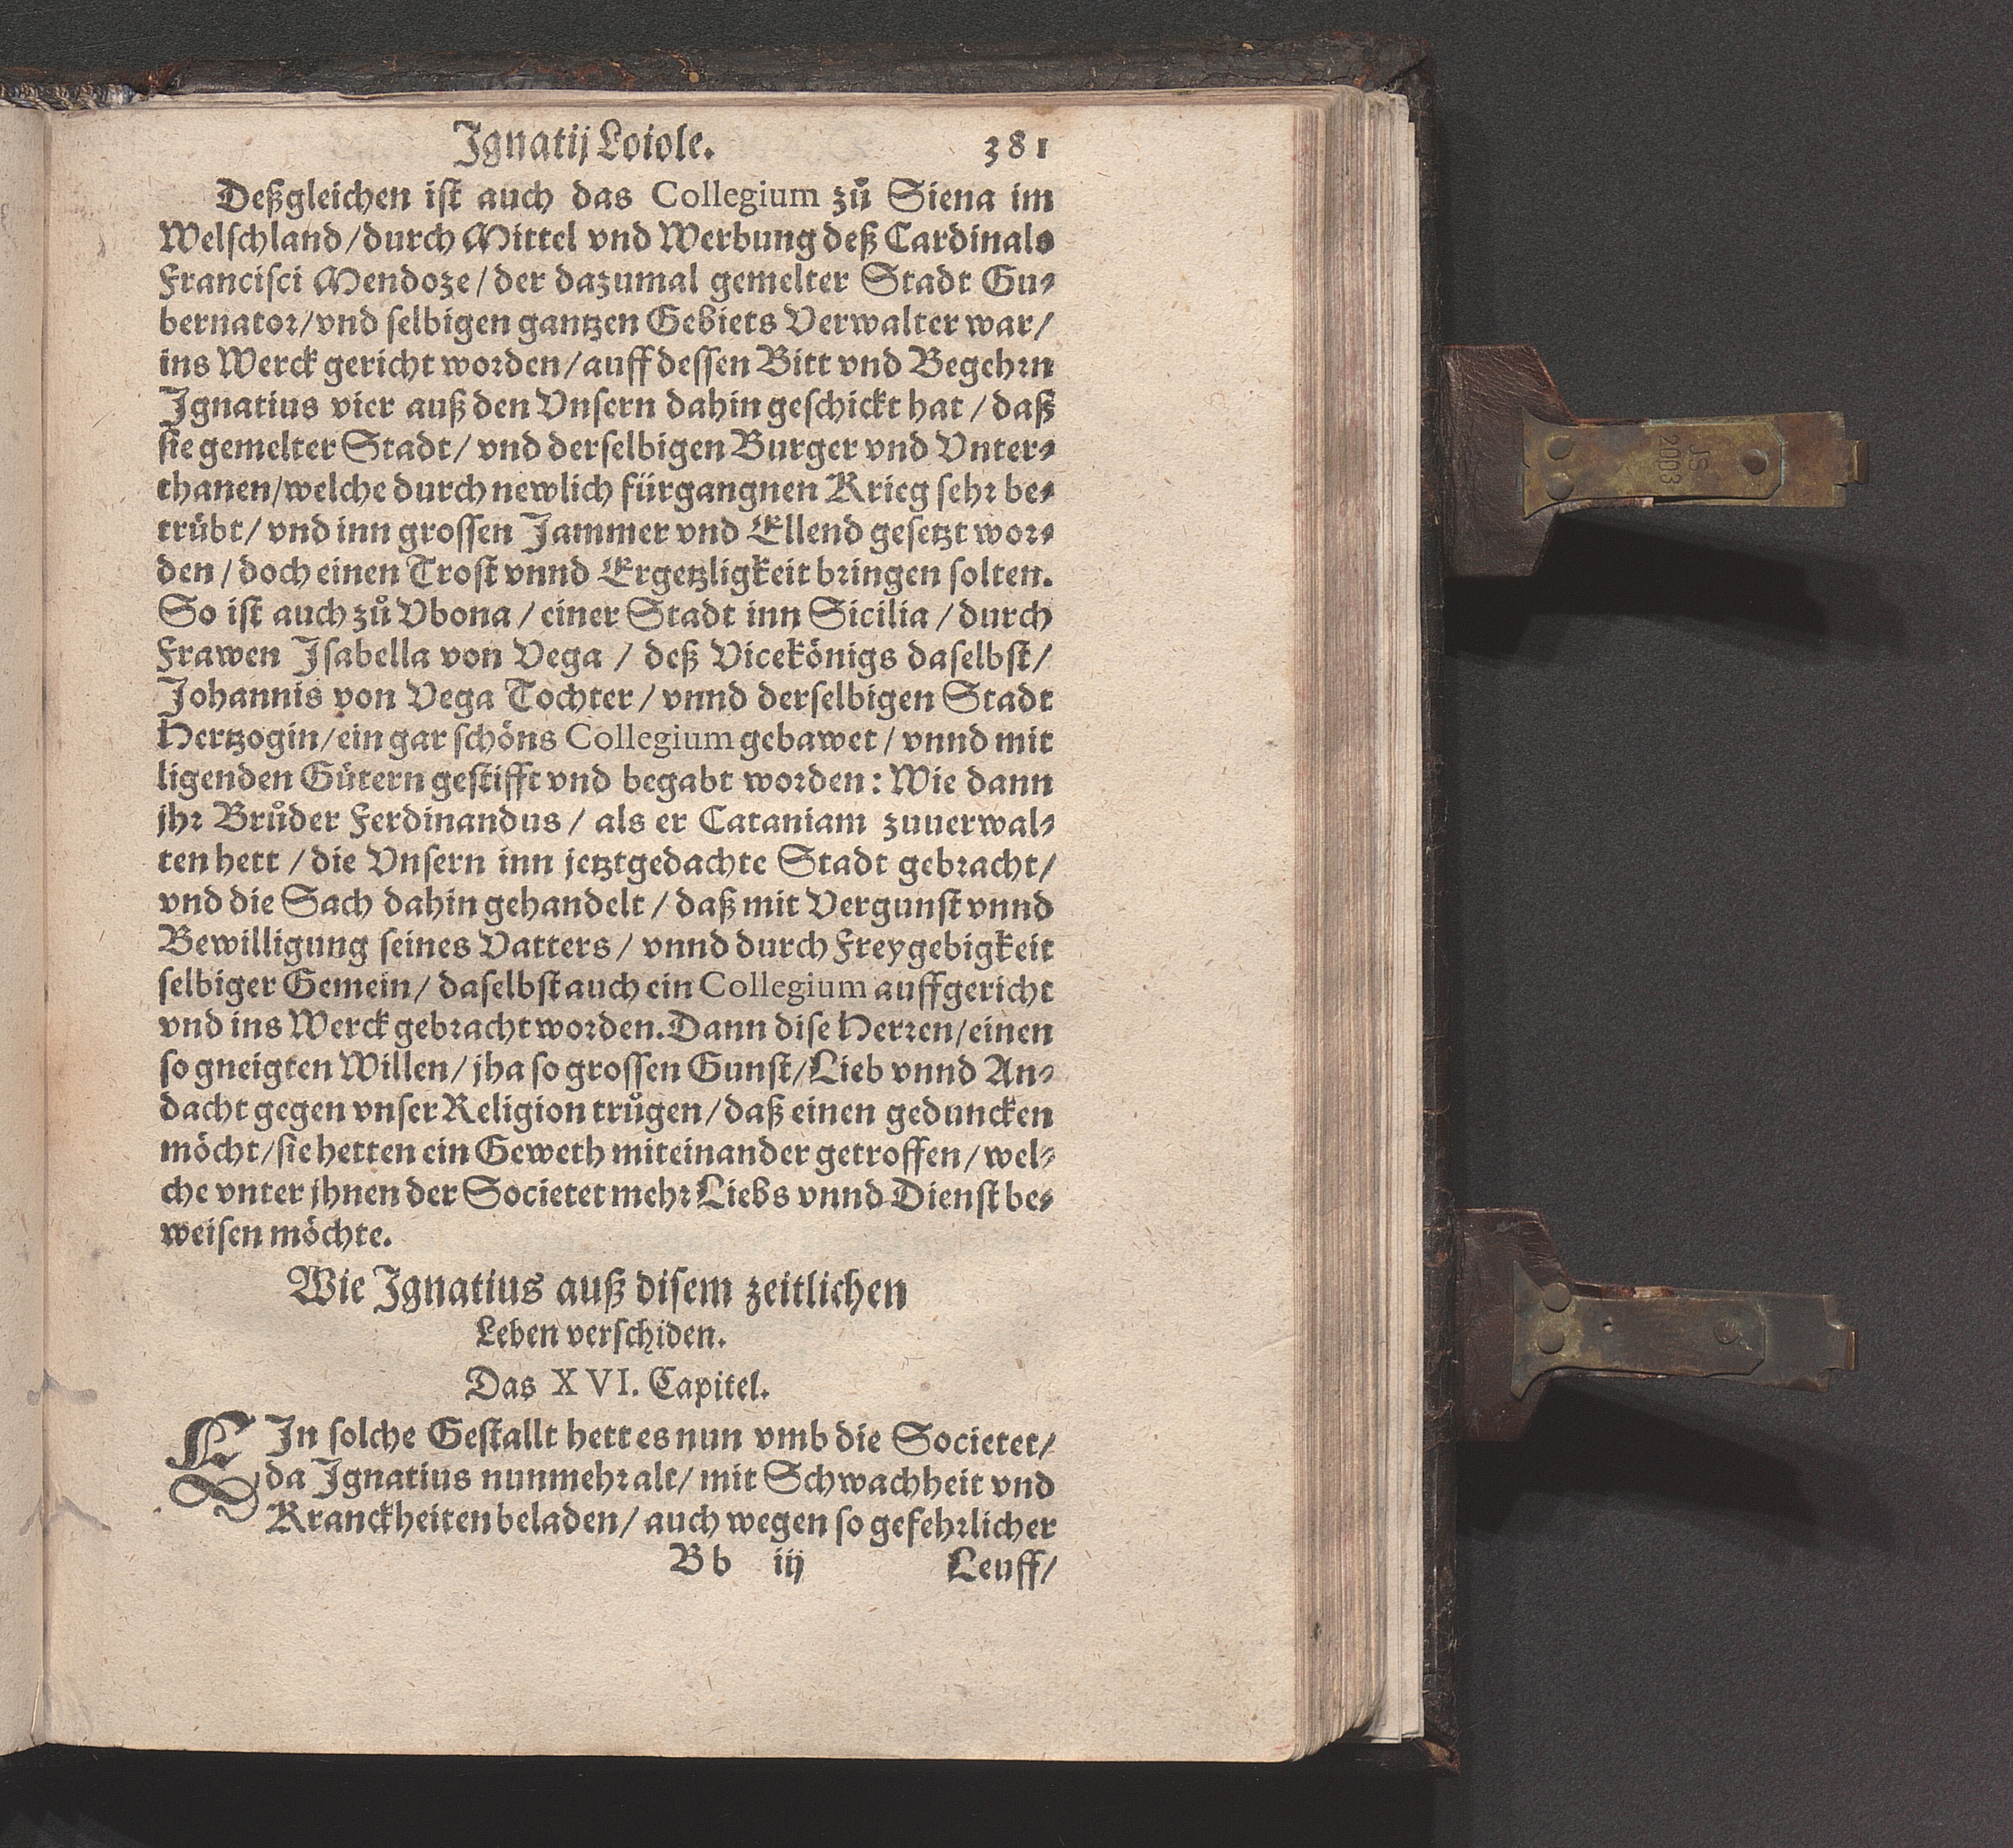 Ignatij Loiole. 381
Deßgleichen ist auch das Collegium zů Siena im
Welschland/durch Mittel vnd Werbung deß Cardinals
Francisci Mendoze/der dazumal gemelter Stadt Gu-
bernator/vnd selbigen gantzen Gebiets Verwalter war/
ins Werck gericht worden/auff dessen Bitt vnd Begehrn
Ignatius vier auß den Vnsern dahin geschickt hat/daß
sie gemelter Stadt/vnd derselbigen Burger vnd Vnter-
thanen/welche durch newlich fürgangnen Krieg sehr be-
trübt/vnd inn grossen Jammer vnd Ellend gesetzt wor-
den/doch einen Trost vnnd Ergetzligkeit bringen solten.
So ist auch zů Vbona/einer Stadt inn Sicilia/durch
Frawen Isabella von Vega/deß Vicekönigs daselbst/
Johannis von Vega Tochter/vnnd derselbigen Stadt
Hertzogin/ein gar schöns Collegium gebawet/vnnd mit
ligenden Gütern gestifft vnd begabt worden: Wie dann
jhr Brůder Ferdinandus/als er Cataniam zuuerwal-
ten hett/die Vnsern inn jetztgedachte Stadt gebracht/
vnd die Sach dahin gehandelt/daß mit Vergunst vnnd
Bewilligung seines Vatters/vnnd durch Freygebigkeit
selbiger Gemein/daselbst auch ein Collegium auffgericht
vnd ins Werck gebracht worden. Dann dise Herren/einen
so gneigten Willen/jha so grossen Gunst/Lieb vnnd An-
dacht gegen vnser Religion trůgen/daß einen geduncken
möcht/sie hetten ein Geweth miteinander getroffen/wel-
che vnter jhnen der Societet mehr Liebs vnnd Dienst be-
weisen möchte.
Wie Ignatius auß disem zeitlichen
Leben verschiden.
Das XVI. Capitel.
EIn solche Gestallt hett es nun vmb die Societet/
da Ignatius nunmehr alt/mit Schwachheit vnd
Kranckheiten beladen/auch wegen so gefehrlicher
Bb iij Leuff/
JS
2003